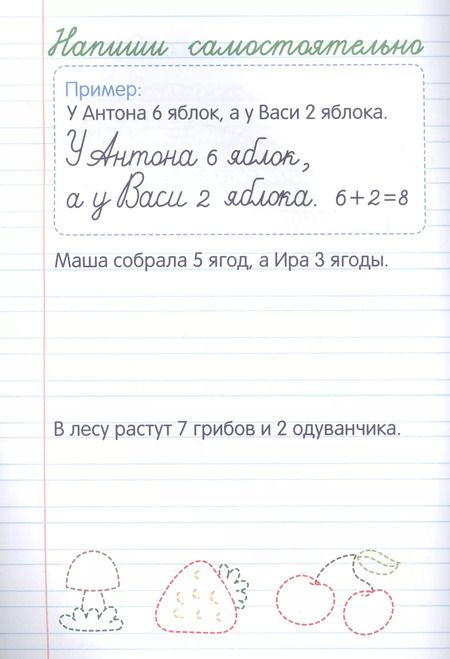 Напиши самостоятельно
Пример:
У Антона 6 яблок, а у Васи 2 яблока.
У Антона 6 яблок,
а у Васи 2 яблока. 6+2=8
Маша собрала 5 ягод, а Ира 3 ягоды.
В лесу растут 7 грибов и 2 одуванчика.